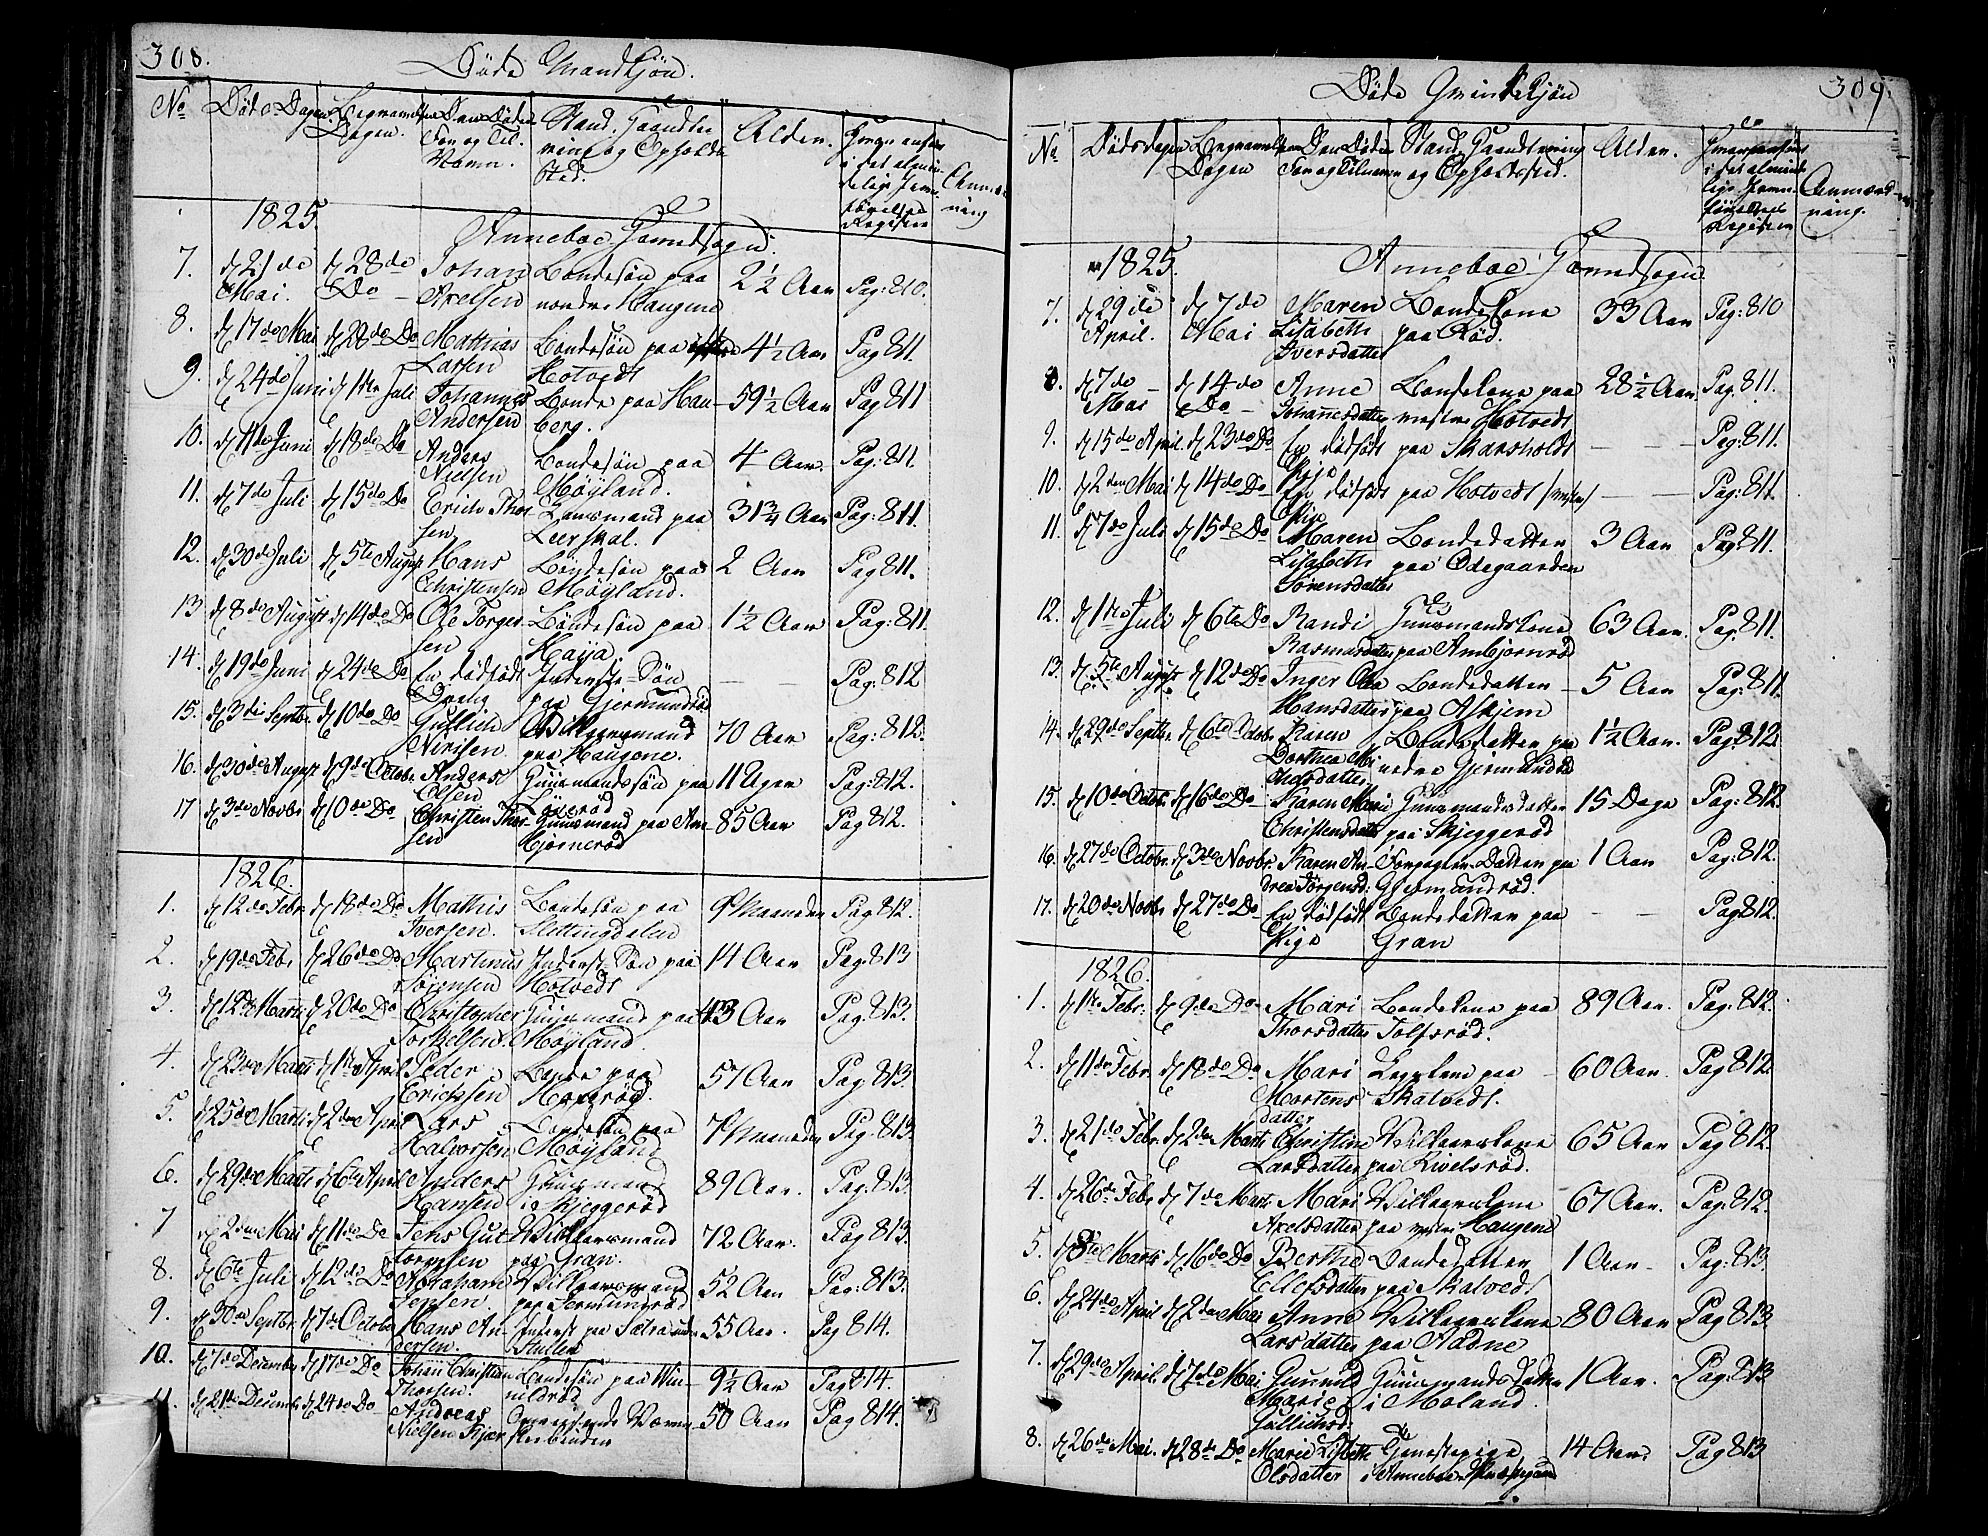 308.
Døde Mandkjøn.
No Døds Dagen. Begravelses Dagen. Den Dødes For og Til Navn. Stand, Haandtering og Opholds Sted. Alder. Anmærkning
1825. Anneboe Hovedsogn.
7. d 21de Mai. d 28de Do Johan Axelsen Bondesøn paa nordre Haugene 2½ Aar Pag: 810.
8. d 17de Mai d 28de Do Mathias Larsen Bondesøn paa Hotvedt 4½ Aar Pag 811.
9. d 24de Juni d 1ste Juli Johannes Andersen Bonde paa Hauberg. 59½ Aar Pag 811
10. d 11de Juni d 18de Do Anders Nielsen Bondesøn paa Møyland. 4 Aar. Pag: 811.
11. d 7de Juli d 15de Do Erich Thorsen Huusmand paa 31¾ Aar Pag: 811.
12. d 30de Juli d 5te August Hans Christensen Bondesøn paa Møyland. 2 Aar Pag 811.
13 d 8de August d 14de Do Ole Torgersen Bondesøn paa Haija 1½ Aar Pag: 811.
14. d 19de Juni d 24de Do En dødfødt Dreng Inderste-Søn paa Gjermundrød — — Pag: 812
15. d 3die Septbr. d 10de Do Gullich Nirisen Wilkaarsmand paa Haugene. 70 Aar Pag: 812.
16. d 30de August d 9de Octobr. Anders Olsen Huusmandssøn paa 11 Uger Pag: 812.
17 d 3de Novbr d 10de Do Christen Thorsen Huusmand paa Ambjørnerød 85 Aar Pag 812.
1826.
1. d 12de Febr. d 18de Do Mathis Iversen. Bondesøn paa Slettingdalen 9 Maaneder Pag 812.
2. d 19de Febr d 26de Do Martinus Sørensen Inderst Søn paa Hotvedt 14 Aar Pag: 813
3. d 12de Marts d 20de Do Christopher Torkelsen. Huusmand paa Møyland 43 Aar Pag: 813.
4. d 23de Marts d 1ste April Peder Erichsen Bonde paa 57 Aar Pag 813.
5. d 25de Marts d 2den April Lars Halvorsen Bondesøn paa Møyland 7 Maaneder Pag: 813.
6. d 29de Marts d 6te April Anders Hansen Huusmand i Skjeggerød 89 Aar. Pag: 813
7 d 2den Mai d 11de Do Jens Guttormsen Wilkaarsmand paa Gran. 72 Aar. Pag 813.
8. d 6te Juli d 12de Do Abraham Jensen. Wilkaarsmand paa Sermungrød 52 Aar Pag: 813.
9. d 30de Septbr. d 7de October Hans Andersen. Inderst paa Sætra 55 Aar. Pag 814.
10. d 7de December d 17de Do Johan Christian Thorsen. Bondesøn paa Winnildrød 9½ Aar Pag 814.
11. d 21de December d 24de Do Andreas Nielsen Kjær 50 Aar Pag 814.
309.
Døde Qvindekjøn
No. Dødsdagen Begravelses Dagen Den Dødes For og Tilnavn Stand, Haandtering og Opholdssted. Alder. Anmærkning.
1825. Annebøe Hovedsogn
7. d 29de April. d 7de Mai Maren Lisabeth Iversdatter Bondekone paa Rød. 33 Aar Pag: 810
8. d 7de Mai d 14de Do Anne Johannesdatter Bondekone paa vestre Hotvedt 28½ Aar Pag. 811.
9. d 15de April d 23de Do En dødfødt Pige paa Skarsholdt — — Pag: 811.
10. d 2den Mai d 14de Do En dødfødt Pige paa Hotvedt — — Pag: 811.
11. d 7de Juli d 15de Do Maren Lisabeth Sørensdatter Bondedatter paa Ødegaarden 3 Aar Pag: 811.
12. d 1ste Juli d 6te Do Randi Rasmusdatter Huusmandskone paa Ambjørnrød 63 Aar. Pag. 811.
13. d 5te August d 12de Do Inger Olea Hansdatter Bondedatter paa Askjem 5 Aar Pag: 811.
14. d 29de Septbr. d 6te Octobr. Karen Dorthea Mathisdatter Bondedatter paa nedre Gjermundrød 1½ Aar. Pag. 812.
15. d 10de Octobr. d 16de Do Karen Marie Christensdatter Huusmandsdatter paa Skjeggerød 15 Dage Pag: 812.
16. d 27de Octobr. d 3de Novbr. Karen Andrea Jørgensd: Forpagter-Datter paa Gjermundrød. 1 Aar Pag: 812.
17. d 20de Novbr d 27de Do En dødfødt Pige Bondedatter paa Gran — — Pag 812.
1826.
1. d 1ste Febr. d 9de Do Mari Thorsdatter Bondekone paa Tolfsrød. 89 Aar. Pag: 812.
2. d 11de Febr. d 18de Do Mari Mortensdatter paa Skalvedt. 60 Aar. Pag 812.
3. d 21de Febr. d 2den Marts Christine Larsdatter Wilkaarskone paa Rivelsrød. 65 Aar Pag 812.
4. d 26de Febr d 7de Marts Mari Axelsdatter Wilkaarskone paa vestre Haugene 67 Aar. Pag: 812.
5. d 8de Marts d 16de Do Berthe Ellefsdatter Bondedatter paa Skalvedt 1 Aar Pag: 813.
6. d 24de April d 2den Mai Anne Larsdatter Wilkaarskone paa Aadne 80 Aar Pag 813.
7. d 29de April. d 7de Mai Gunnild Marie Gullichsd: Huusmands Datter i Moland. 1 Aar. Pag. 813
8. d 26de Mai. d 28de Do Marie Lisbeth Olsdatter Tjenestepige i Annebøe 14 Aar. Pag 813